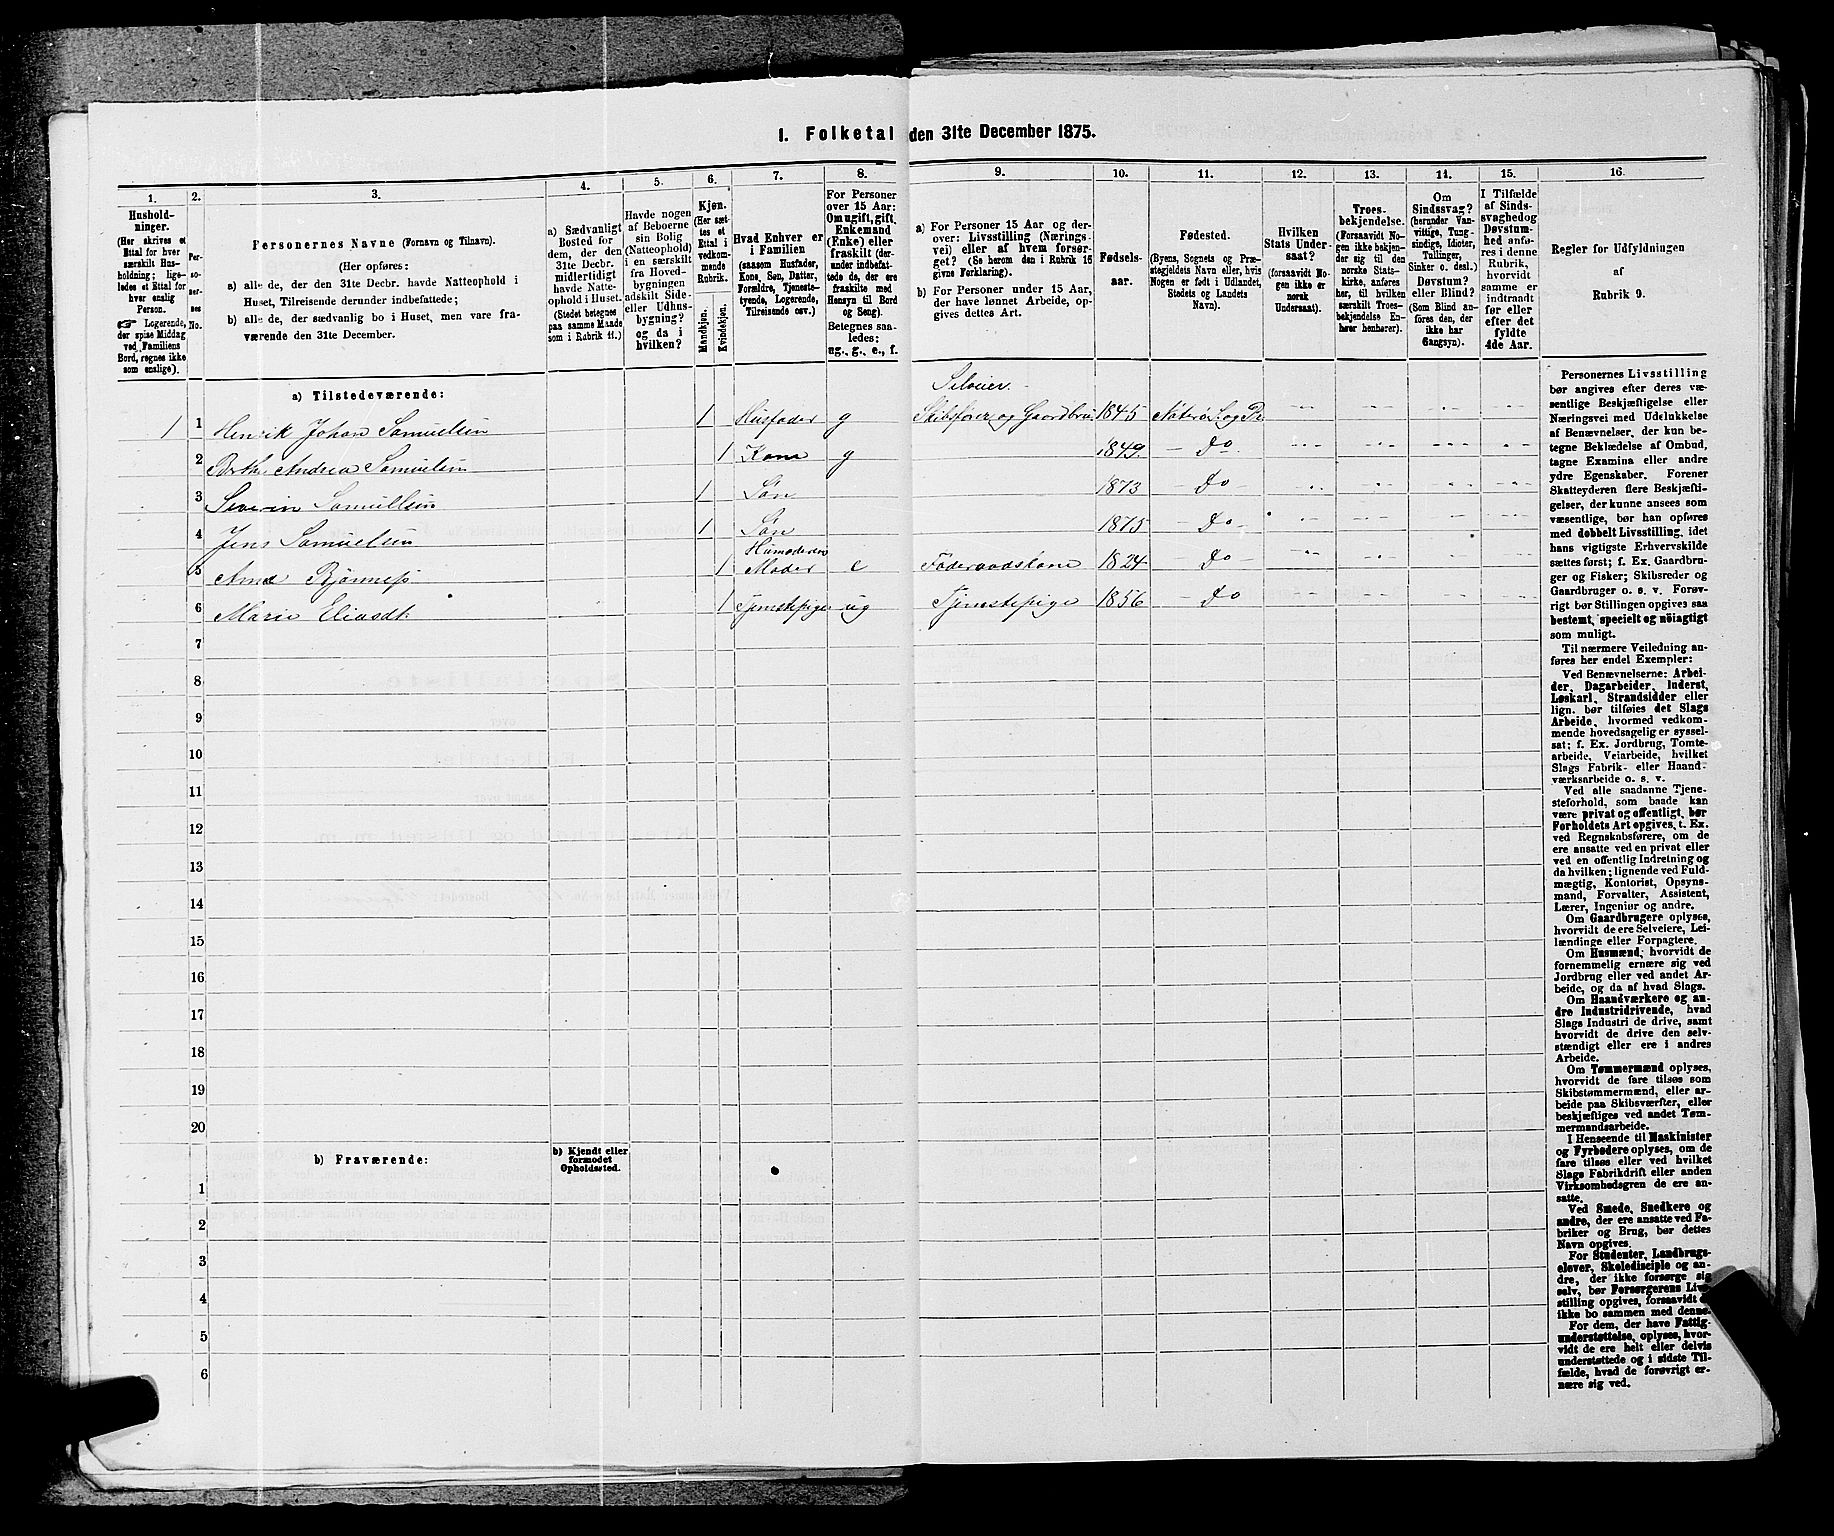 I. Folketal den 31te December 1875.
1. 2. 3. 4. 5. 6. 7. 8. 9. 10. 11. 12. 13. 14. 15. 16.
Hushold-
ninger.
(Her skrives et
Ettal for hver
særskilt Hus-
holdning; lige-
ledes et Ettal for
hver enslig
Person.
☞ Logerende,
der spise Middag
ved Familiens
Bord, regnes ikke
som enslige).
Per-
so-
ner-
nes
No.
Personernes Navne (Fornavn og Tilnavn).
(Her opføres:
a) alle de, der den 31te Decbr. havde Natteophold i
Huset, Tilreisende derunder indbefattede;
b) alle de, der sædvanlig bo i Huset, men vare fra-
værende den 31te December.
a) Sædvanligt
Bosted for
dem, der den
31te Decbr.
midlertidigt
havde Natte-
ophold i Huset.
(Stedet betegnes
paa samme Maade
som i Rubrik 11.)
Havde nogen
af Beboerne
sin Bolig
(Natteophold)
i en særskilt
fra Hoved-
bygningen
adskilt Side-
eller Udhus-
bygning?
og da i
hvilken?
Kjøn.
(Her sæt-
tes et
Ettal i
vedkom-
mende
Rubrik.
Mandkjøn.
Kvindekjøn.
Hvad Enhver er
i Familien
(saasom Husfader,
Kone, Søn, Datter,
Forældre, Tjeneste-
tyende, Logerende,
Tilreisende osv.)
For Personer
over 15 Aar:
Om ugift, gift,
Enkemand
(Enke) eller
fraskilt (der-
under indbefat-
tede de, der ere
fraskilte med
Hensyn til Bord
og Seng).
Betegnes saa-
ledes:
ug., g., e., f.
a) For Personer 15 Aar og der-
over: Livsstilling (Nærings-
vei) eller af hvem forsør-
get? (Se herom den i Rubrik 16
givne Forklaring).
b) For Personer under 15 Aar,
der have lønnet Arbeide, op-
gives dettes Art.
Fødsels-
aar.
Fødested.
(Byens, Sognets og Præ-
stegjeldets Navn eller, hvis
Nogen er født i Udlandet,
Stedets og Landets
Navn).
Hvilken
Stats Under-
saat?
(forsaavidt No-
gen ikke er
norsk
Undersaat).
Troes-
bekjendelse.
(Forsaavidt No-
gen ikke bekjen-
der sig til den
norske Stats-
kirke, anføres
her, til hvilken
særskilt Troes-
bekjendelse En-
hver henhører).
Om
Sindssvag?
(herunder Van-
vittige, Tung-
sindige, Idioter,
Tullinger,
Sinker o. desl.)
Døvstum?
eller Blind?
(Som Blind an-
føres den, der
ikke har
Gangsyn).
I Tilfælde
af Sinds-
svaghed og
Døvstum-
hed anfø-
res i denne
Rubrik,
hvorvidt
samme er
indtraadt
før eller
efter det
fyldte
4de Aar.
Regler for Udfyldningen
af
Rubrik 9.
a) Tilstedeværende:
Selveier
1 1 Henrik Johan Samuelsen 1 Husfader g Skibsfører og Gaardbru 1845
2 Berthe Andrea Samuelsen 1 Kone g 1849 Do
3 Severin Samuelsen 1 Søn 1873 Do
4 Jens Samuelsen 1 Søn 1875 Do
5 1 Moder e Føderaadskone 1824 Do
6 Marie Eliasdt. 1 Tjenstepige ug Tjenstepige 1856 Do
7
8
9
10
11
12
13
14
15
16
17
18
19
20
b) Fraværende:
b) Kjendt eller
formodet
Opholdssted.
1
2
3
4
5
6
Personernes Livsstilling
bør angives efter deres væ-
sentlige Beskjæftigelse eller
Næringsvei med Udelukkelse
af Benævnelser, der kun be-
tegne Beklædelse af Ombud,
tagne Examina eller andre
ydre Egenskaber. Forener
Skatteyderen flere Beskjæfti-
gelser, der kunne ansees som
væsentlige, bør han opføres
med dobbelt Livsstilling, idet
hans vigtigste Erhvervskilde
sættes først; f. Ex. Gaardbru-
ger og Fisker; Skibsreder og
Gaardbruger o. s. v. Forøv-
rigt bør Stillingen opgives saa
bestemt, specielt og nøiagtigt
som muligt.
Til nærmere Veiledning an-
føres her endel Exempler:
Ved Benævnelserne: Arbei-
der, Dagarbeider, Inderst,
Løskarl, Strandsidder eller
lign. bør tilføies det Slags
Arbeide, hvormed vedkom-
mende hovedsagelig er syssel-
sat; f. Ex. Jordbrug, Tomte-
arbeide, Veiarbeide, hvilket
Slags Fabrik- eller Haand-
værksarbeide o. s. v.
Ved alle saadanne Tjene-
steforhold, som baade kan
være privat og offentligt, bør
Forholdets Art opgives, t. Ex.
ved Regnskabsførere, om de
ere ansatte ved en privat eller
ved en offentlig Indretning og
da hvilken; lignende ved Fuld-
mægtig, Kontorist, Opsyns-
mand, Forvalter, Assistent,
Lærer, Ingeniør og andre.
Om Gaardbrugere oplyses,
hvorvidt de ere Selveiere, Lei-
lændinge eller Forpagtere.
Om Husmænd, hvorvidt de
fornemmelig ernære sig ved
Jordbrug eller ved andet Ar-
beide, og da af hvad Slags.
Om Haandværkere og an-
dre Industridrivende, hvad
Slags Industri de drive, samt
hvorvidt de drive den selv-
stændigt eller ere i andres
Arbeide.
Om Tømmermænd oplyses,
hvorvidt de fare tilsøs som
Skibstømmermænd, eller ar-
beide paa Skibsværfter, eller
beskjæftiges ved andet Tøm-
mermandsarbeide.
I Henseende til Maskinister
og Fyrbødere oplyses, om de
fare tilsøs eller ved hvilket
Slags Fabrikdrift eller anden
Virksomhedsgren de ere an-
satte.
Ved Smede, Snedkere og
andre, der ere ansatte ved Fa-
briker og Brug, bør dettes
Navn opgives.
For Studenter, Landbrugs-
elever, Skoledisciple og an-
dre, der ikke forsørge sig
selv, bør Forsørgerens Liv-
stilling opgives, forsaavidt
ikke bo sammen med denne.
For dem, der have Fattig-
understøttelse, oplyses, hvor-
vidt de ere helt eller delvis
understøttede og i sidste Til-
fælde, hvad de forøvrigt er-
nære sig ved.